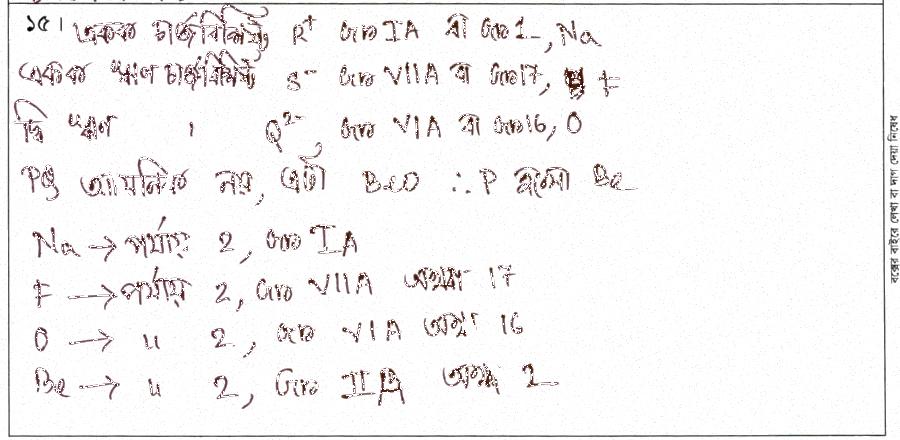 ১৫। একক চার্জবিশিষ্ট R⁺ গ্রুপ IA বা গ্রুপ 1, Na
একক ঋণ চার্জবিশিষ্ট S⁻ গ্রুপ VIIA বা গ্রুপ 17, F
দ্বি ঋণ , Q²⁻ গ্রুপ VIA বা গ্রুপ 16, O
PQ আয়নিক নয়, এটা BeO ∴ P হলো Be
Na → পর্যায় 2, গ্রুপ IA
F → পর্যায় 2, গ্রুপ VIIA অথবা 17
O → " 2, গ্রুপ VIA অথবা 16
Be → " 2, গ্রুপ IIA অথবা 2
বক্সের বাইরে লেখা বা দাগ দেয়া নিষেধ